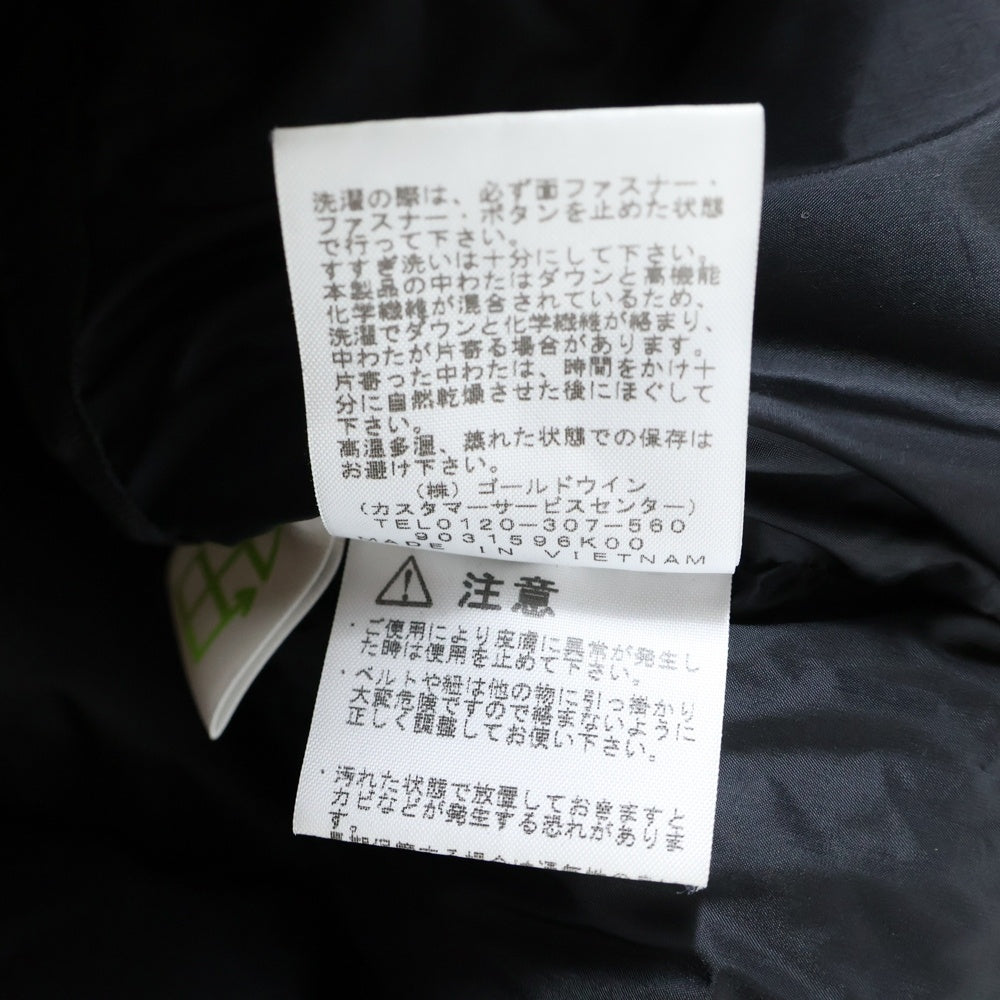 洗濯の際は、必ず面ファスナー・
ファスナー・ボタンを止めた状態
で行って下さい。
すすぎ洗いは十分にして下さい。
本製品の中わたはダウンと高機能
化学繊維が混合されているため、
洗濯でダウンと化学繊維が絡まり、
中わたが片寄る場合があります。
片寄った中わたは、時間をかけ十
分に自然乾燥させた後にほぐして
下さい。
高温多湿、蒸れた状態での保存は
お避け下さい。
(株)ゴールドウイン
(カスタマーサービスセンター)
TEL0120-307-560
9031596K00
MADE IN VIETNAM
注意
・ご使用により皮膚に異常が発生し
た時は使用を止めて下さい。
・ベルトや紐は他の物に引っ掛かり
大変危険ですので絡まないように
正しく調整してお使い下さい。
・汚れた状態で放置しておきますと
カビなどが発生する恐れがありま
す。